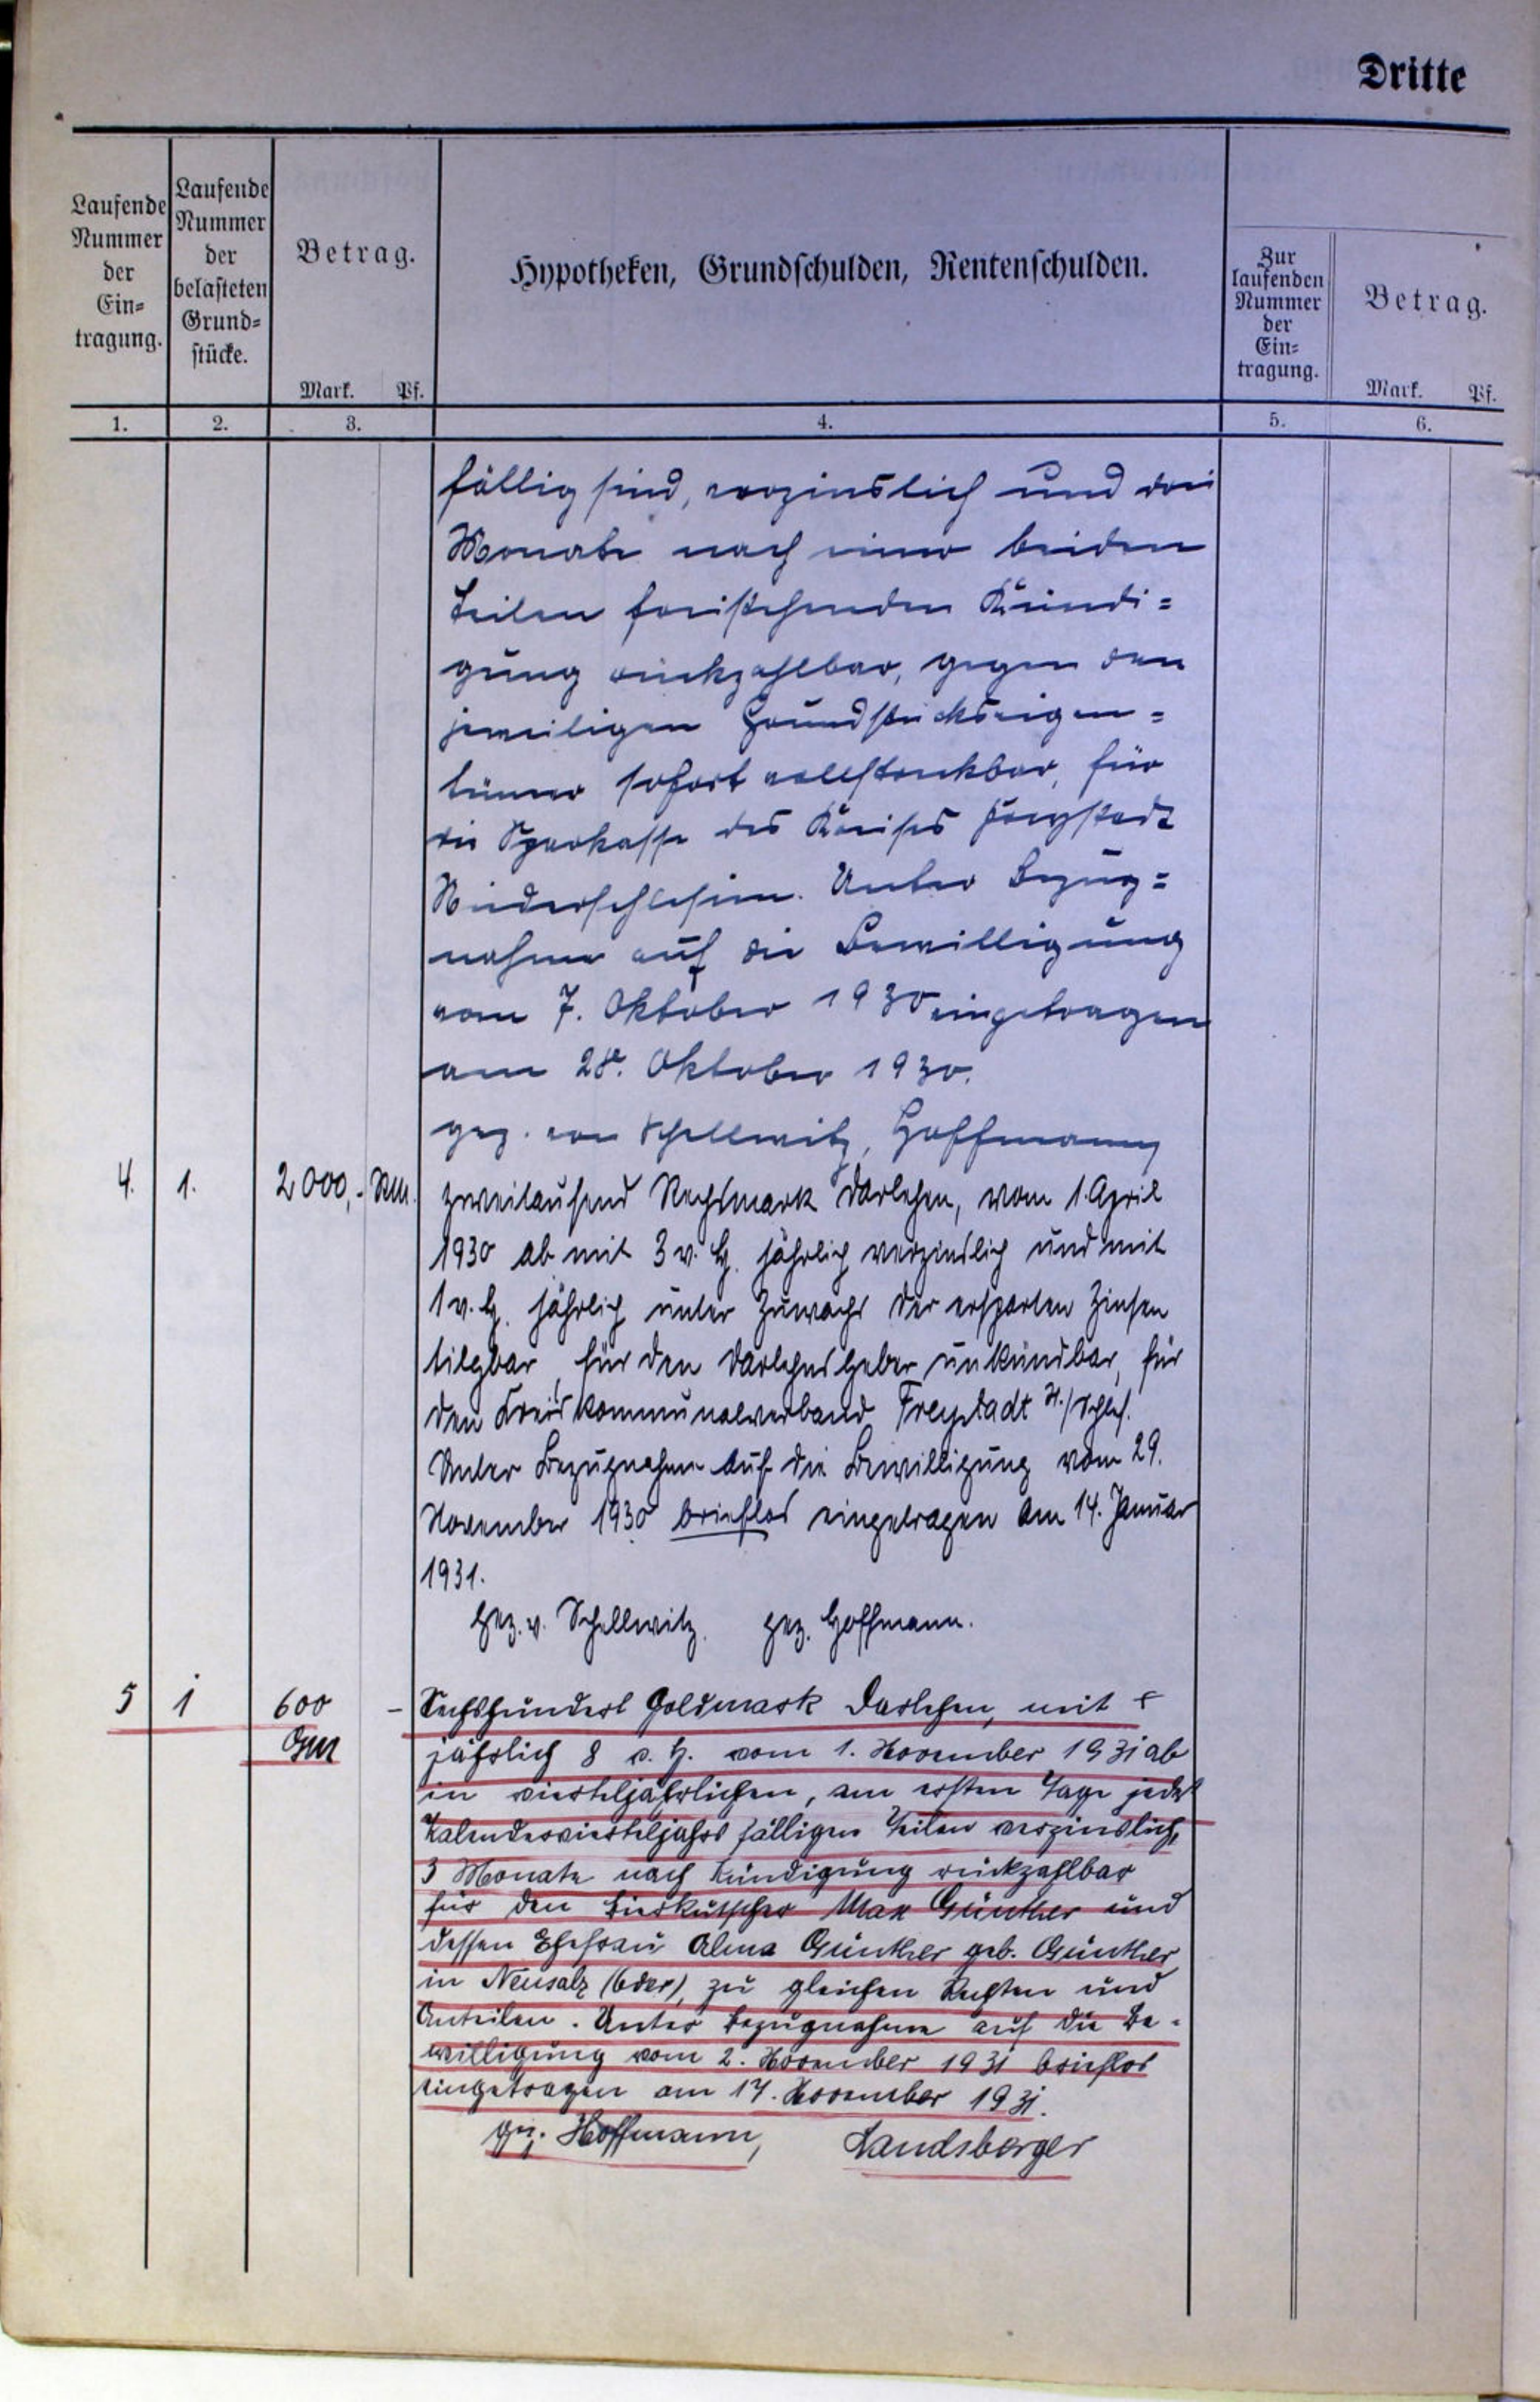 Dritte
Laufende
Nummer
der
Ein-
tragung.
Laufende
Nummer
der
belasteten
Grund-
stücke.
Betrag.
Mark. Pf.
Hypotheken, Grundschulden, Rentenschulden.
Zur
laufenden
Nummer
der
Ein-
tragung.
Betrag.
Mark. Pf.
1. 2. 3. 4. 5. 6.
fällig sind, verzinslich und drei
Monate nach einer beiden
Teilen freistehenden Kündi=
gung rückzahlbar, gegen den
jeweiligen Grundstückseigen=
tümer sofort vollstreckbar, für
die Sparkasse des Kreises Freystadt
Niederschlesien. Unter Bezug=
nahme auf die Bewilligung
vom 7. Oktober 1930 eingetragen
am 28. Oktober 1930.
gez. von Schellwitz, Hoffmann
4. 1. 2000,- RM. Zweitausend Reichsmark Darlehen, vom 1. April
1930 ab mit 3 v. H. jährlich verzinslich und mit
1 v. H. jährlich unter Zuwachs der ersparten Zinsen
tilgbar, für den Darlehnsgeber unkündbar, für
den Kreiskommunalverband Freystadt N./Schles.
Unter Bezugnahme auf die Bewilligung vom 29.
November 1930 brieflos eingetragen am 14. Januar
1931.
Gez. v. Schellwitz. gez. Hoffmann.
5 1 600 - Sechshundert Goldmark Darlehen, mit
GM jährlich 8 v. H. vom 1. November 1931 ab
in vierteljährlichen, am ersten Tage jedes
Kalendervierteljahrs fälligen Teilen verzinslich,
3 Monate nach Kündigung rückzahlbar
für den Bierkutscher Max Günther und
dessen Ehefrau Alma Günther geb. Günther
in Neusalz (Oder), zu gleichen Rechten und
Anteilen. Unter Bezugnahme auf die Be-
willigung vom 2. November 1931 brieflos
eingetragen am 17. November 1931.
gez. Hoffmann, Landsberger